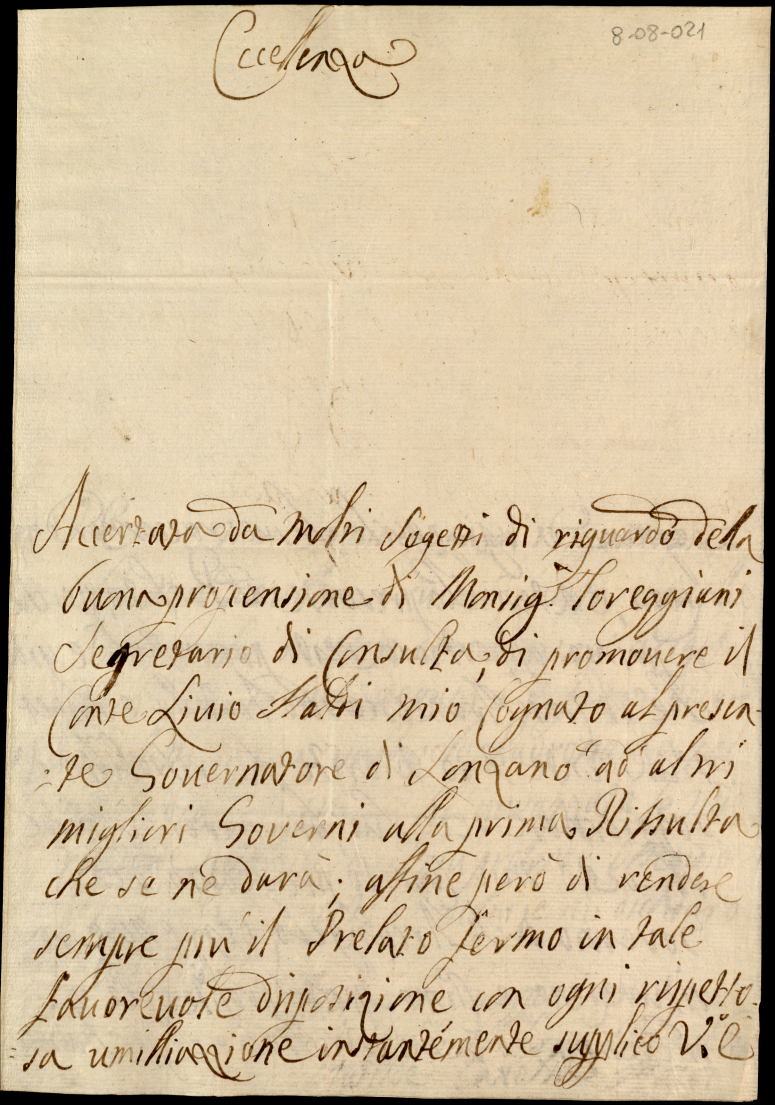 8-08-021
Eccellenza
Accertata da molti sogetti di riguardo della
buona propensione di Monsig.r Toreggiani
Segretario di Consulta, di promovere il
Conte Livio mio Cognato al presen-
-te Governatore di Lonzano ad altri
migliori Governi alla prima Risulta
che se ne darà; affine però di rendere
sempre più il Prelato fermo in tale
favorevole disposizione con ogni rispetto-
=sa umiliazzione instantemente supplico V.ª E